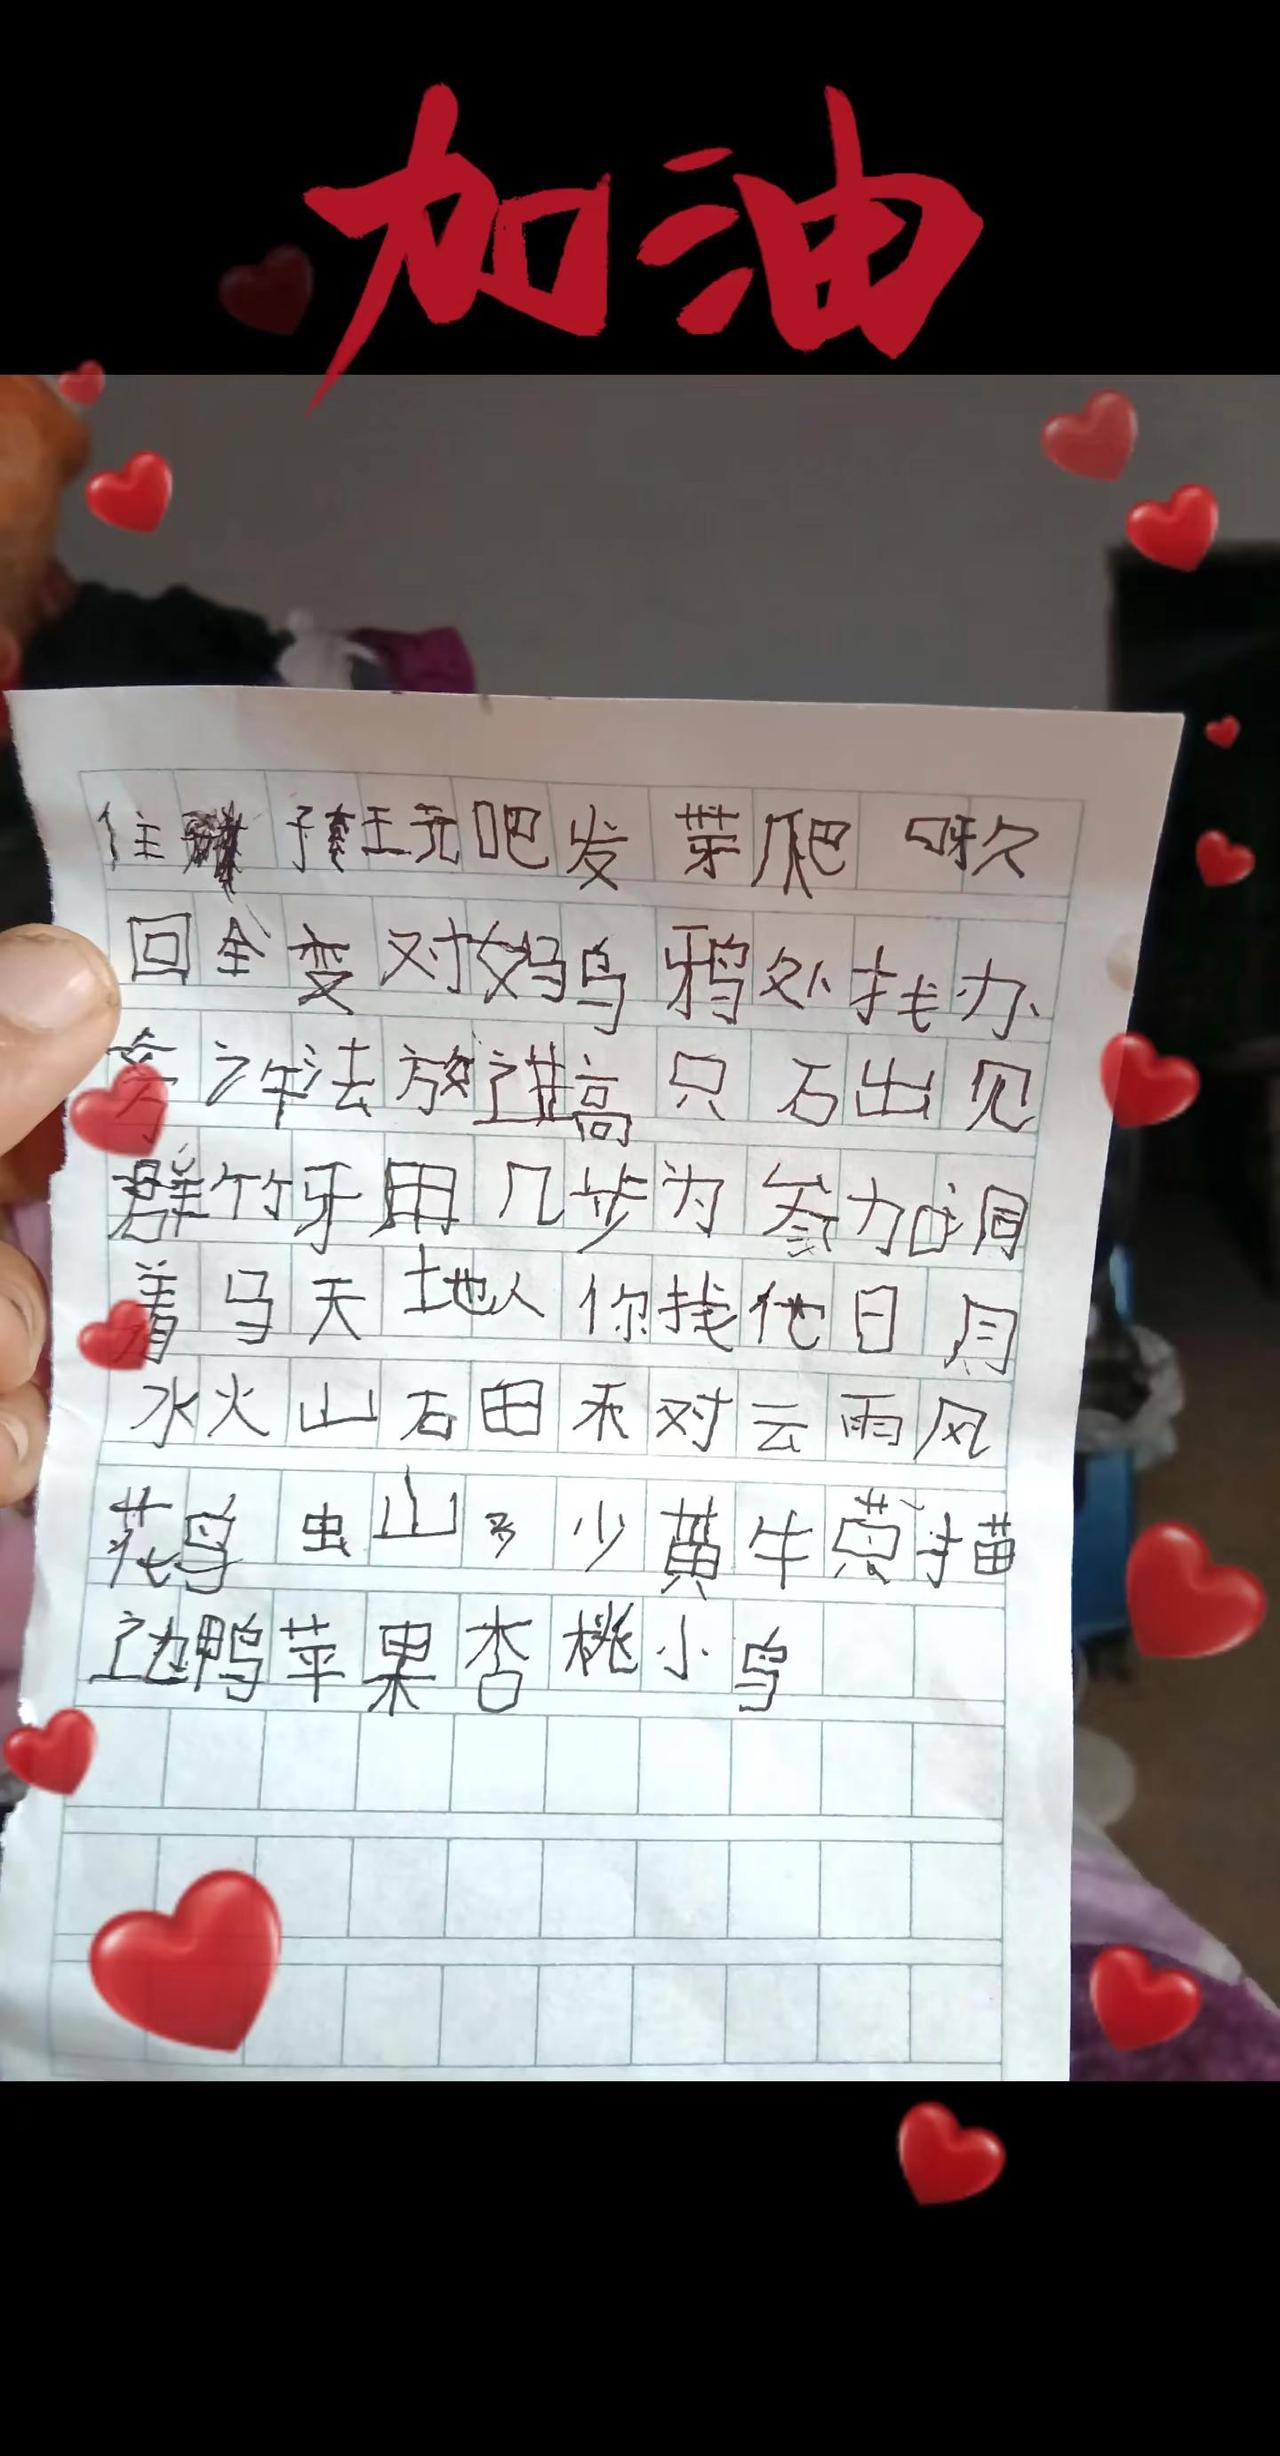 加油
住 孩玩吧发芽爬呀久
回全变对妈乌鸦处找办
旁许法放进高只石出见
群竹牙用几步为参加洞
着马天地人你找他日月
水火山石田禾对云雨风
花鸟虫山多少黄牛 猫
边鸭苹果杏桃小鸟